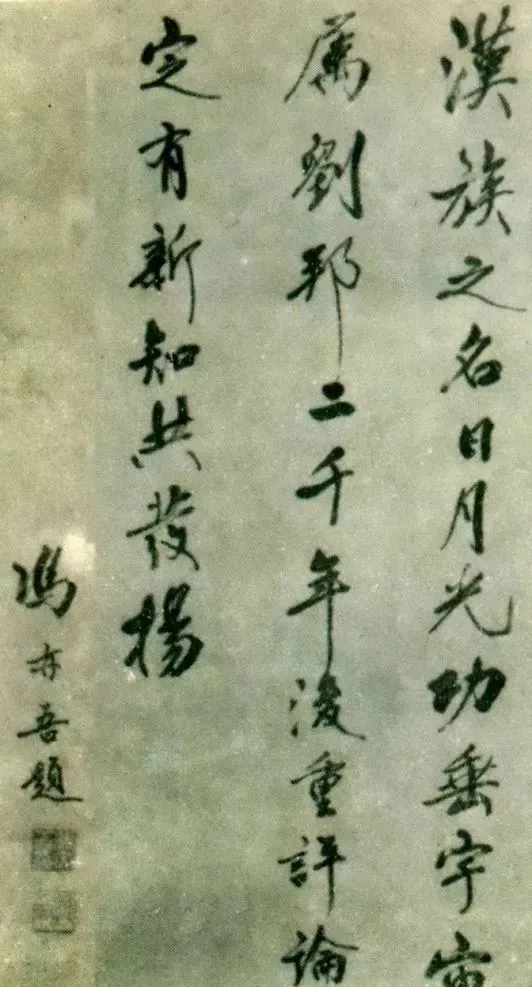 漢族之名日月光功垂宇宙
属劉邦二千年後重評論
定有新知共發揚
馮亦吾題